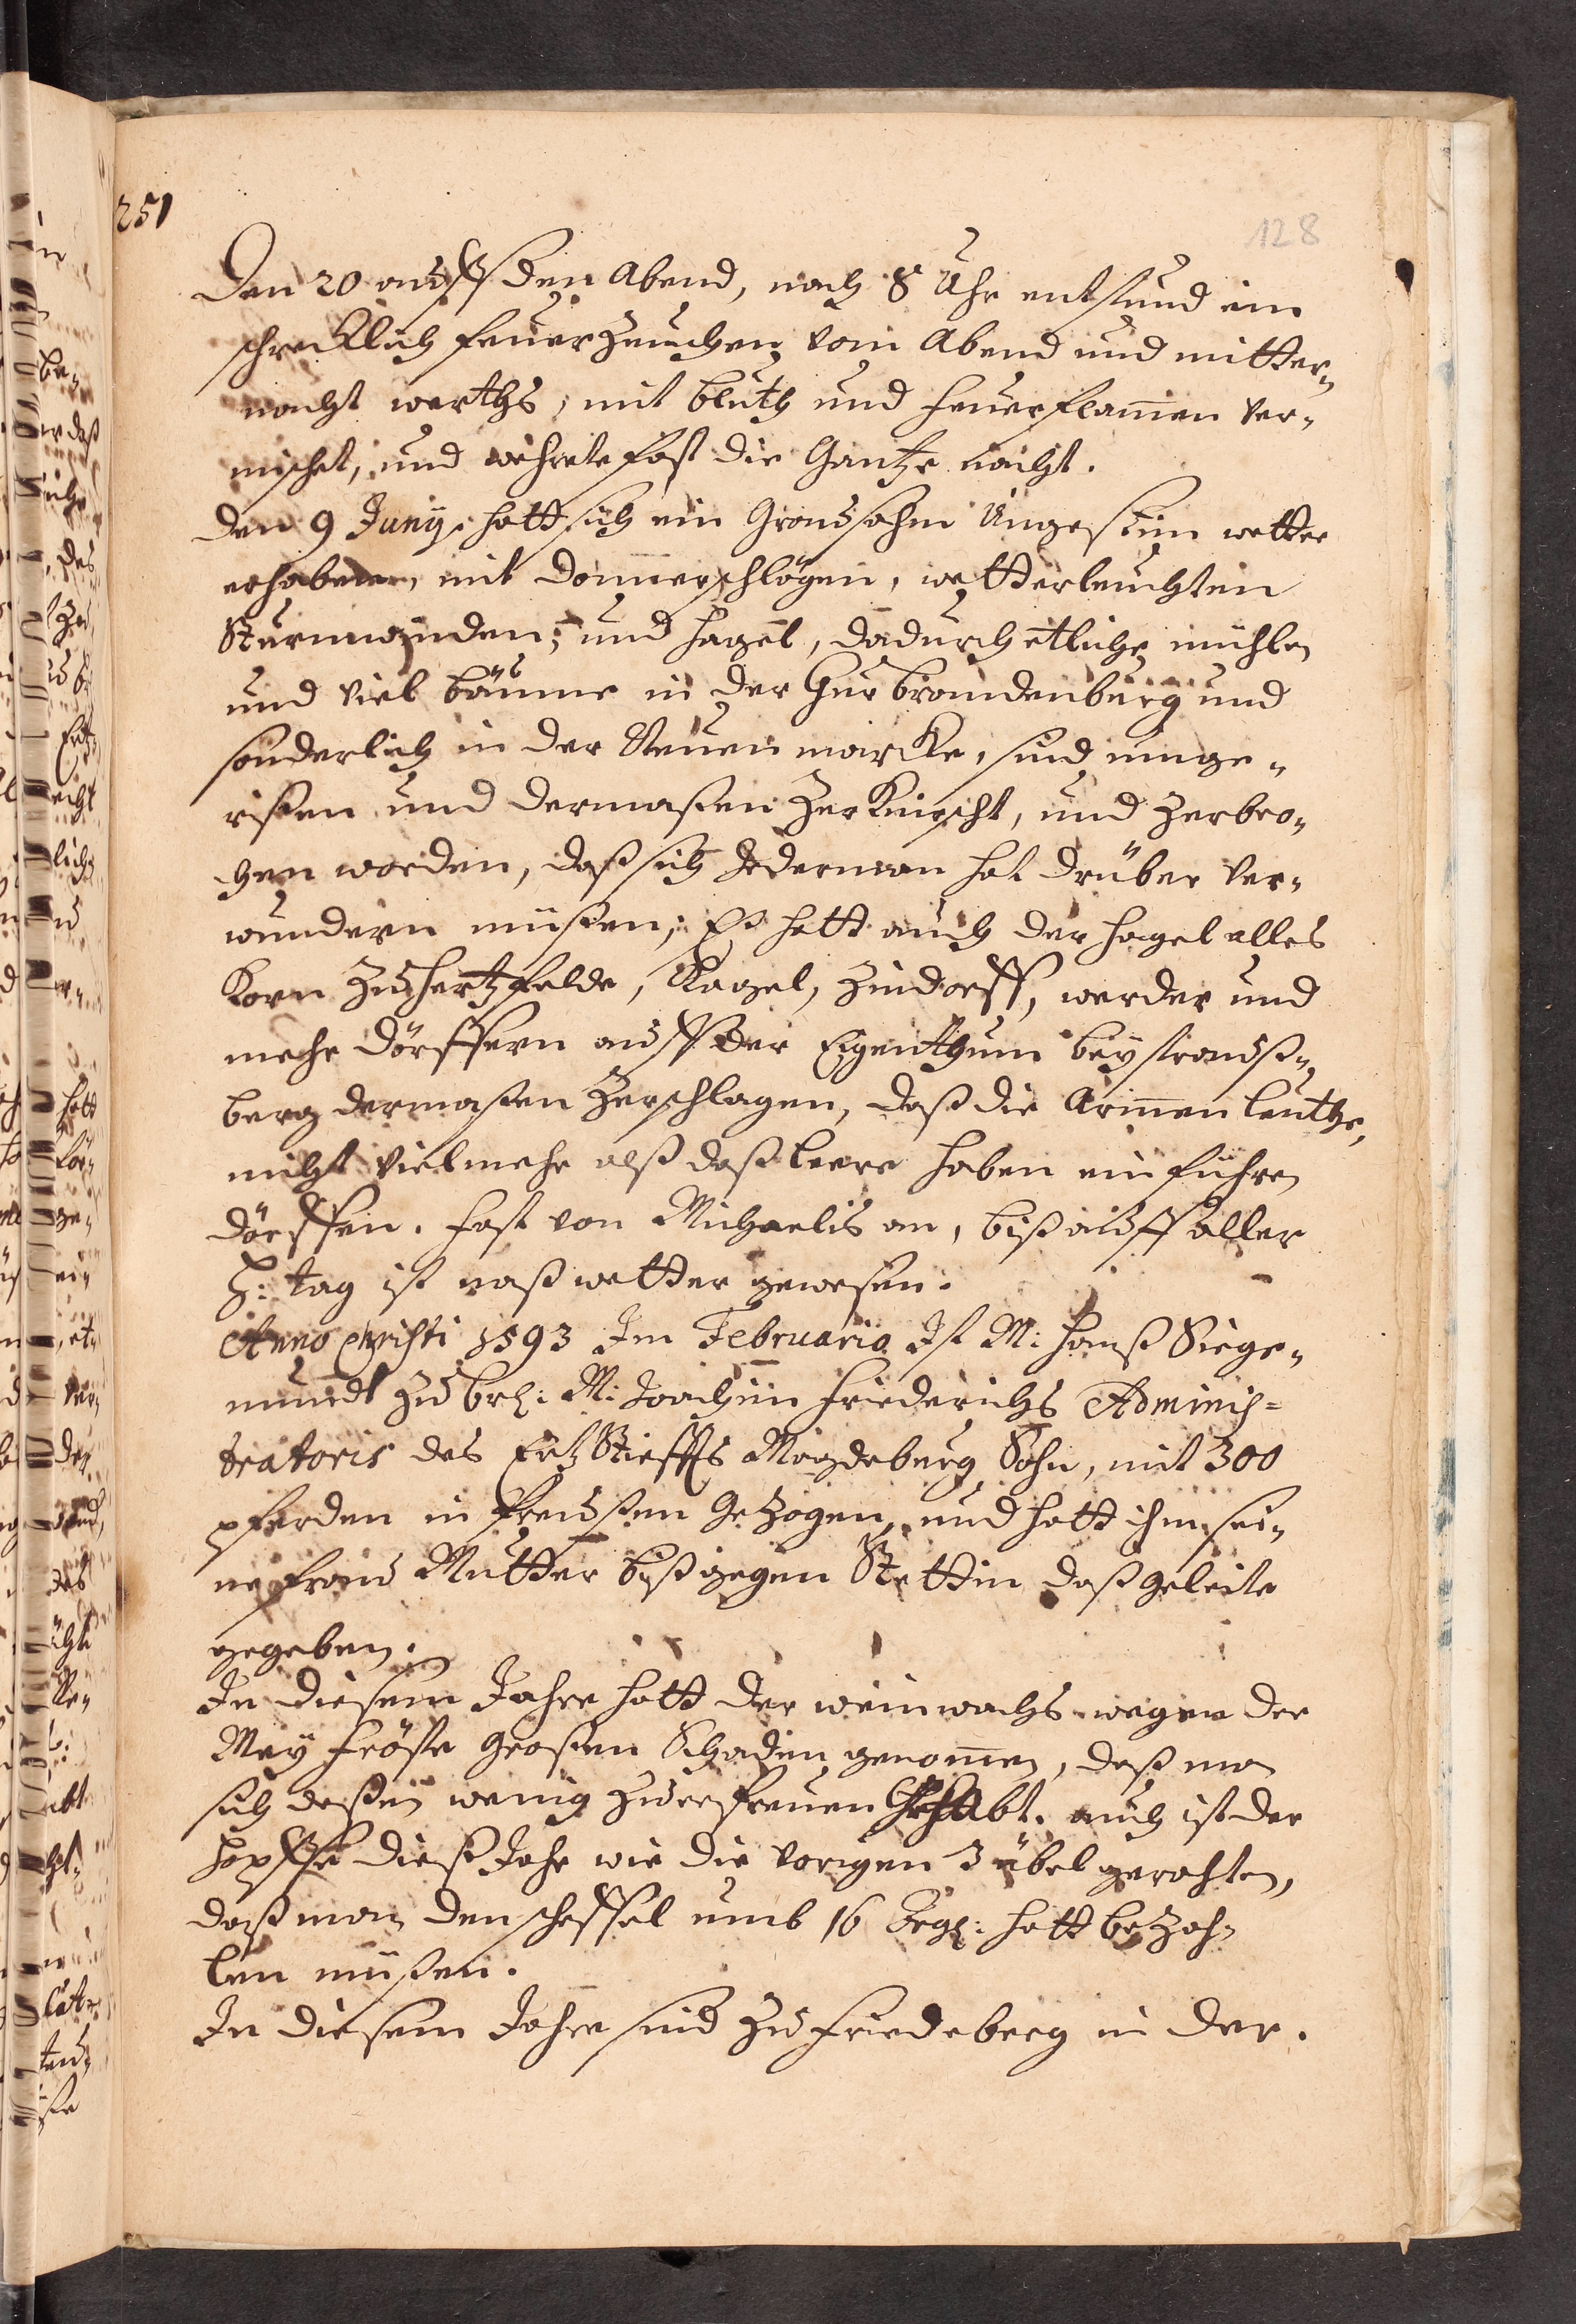 251
128
Den 20 auff den Abend, nach 8 Uhr entstund ein
schrecklich feuerzeichen vom Abend und mitter-
nacht werths, mit bluth und feuerflam̄en ver-
mischet, und wehrete fast die Gantze nacht.
den 9 Junij. hatt sich ein Grausahm Ungestüm wetter
erhaben, mit donnerschlägen, wetterleuchten
Sturmwinden, und hagel, dadurch etliche mühlen
und viel bäume in der Chur brandenburg und
sonderlich in der Neuen marcke, sind umge-
rissen und dermaßen zerknirscht, und zerbro-
chen worden, daß sich Jederman hat drüber ver-
wundern müßen, Es hatt auch der hagel alles
Korn zu hertzfelde, Kagel, Zindorff, werder und
mehr dörffern auff der Eigenthum bey strauß-
berg dermaßen zerschlagen, daß die Arm̄en leuthe,
nicht viel mehr alß daß leere haben einführen
dörffen. fast von Michaelis an, biß auff aller
H: tag ist naß wetter gewesen.
Anno Christi 1593 Im Februario Ist M: hanß Siege-
mundt zu brl: M: Joachim Friederichs Adminis=
tratoris des Ertz Stiffts Magdeburg Sohn, mit 300
pferden in Preußen Gezogen, und hatt ihm sei-
ne frau Mutter biß gegen Stettin daß geleite
gegeben.
In diesem Jahre hatt der weinwachs wegen der
Mey fröste großen Schaden genom̄en, daß man
sich deßen wenig zu erfreuen Gehabt. auch ist der
hopffe dieß Jahr wie die vorigen 3 übel gerahten,
daß man den scheffel umb 16 Srgl: hatt bezah-
len müßen.
In diesem Jahre sind zu friedeberg in der.